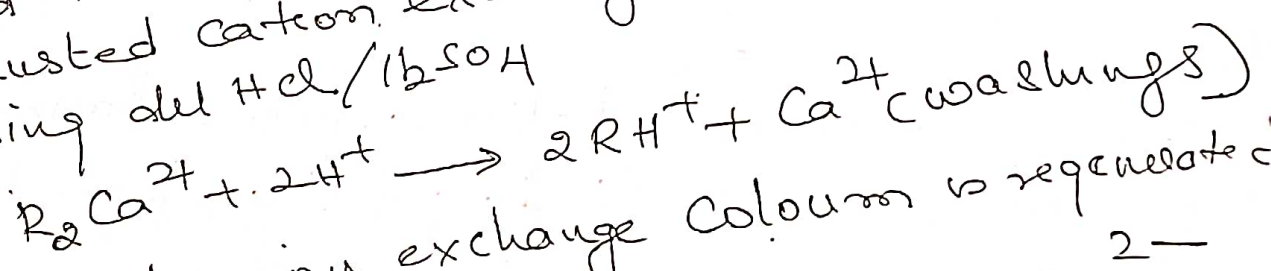 usted cation
ing dil HCl/H2SO4
R₂Ca²⁺ + 2H⁺ → 2RH⁺ + Ca²⁺ (washings)
exchange Coloumn is regenerated
2-